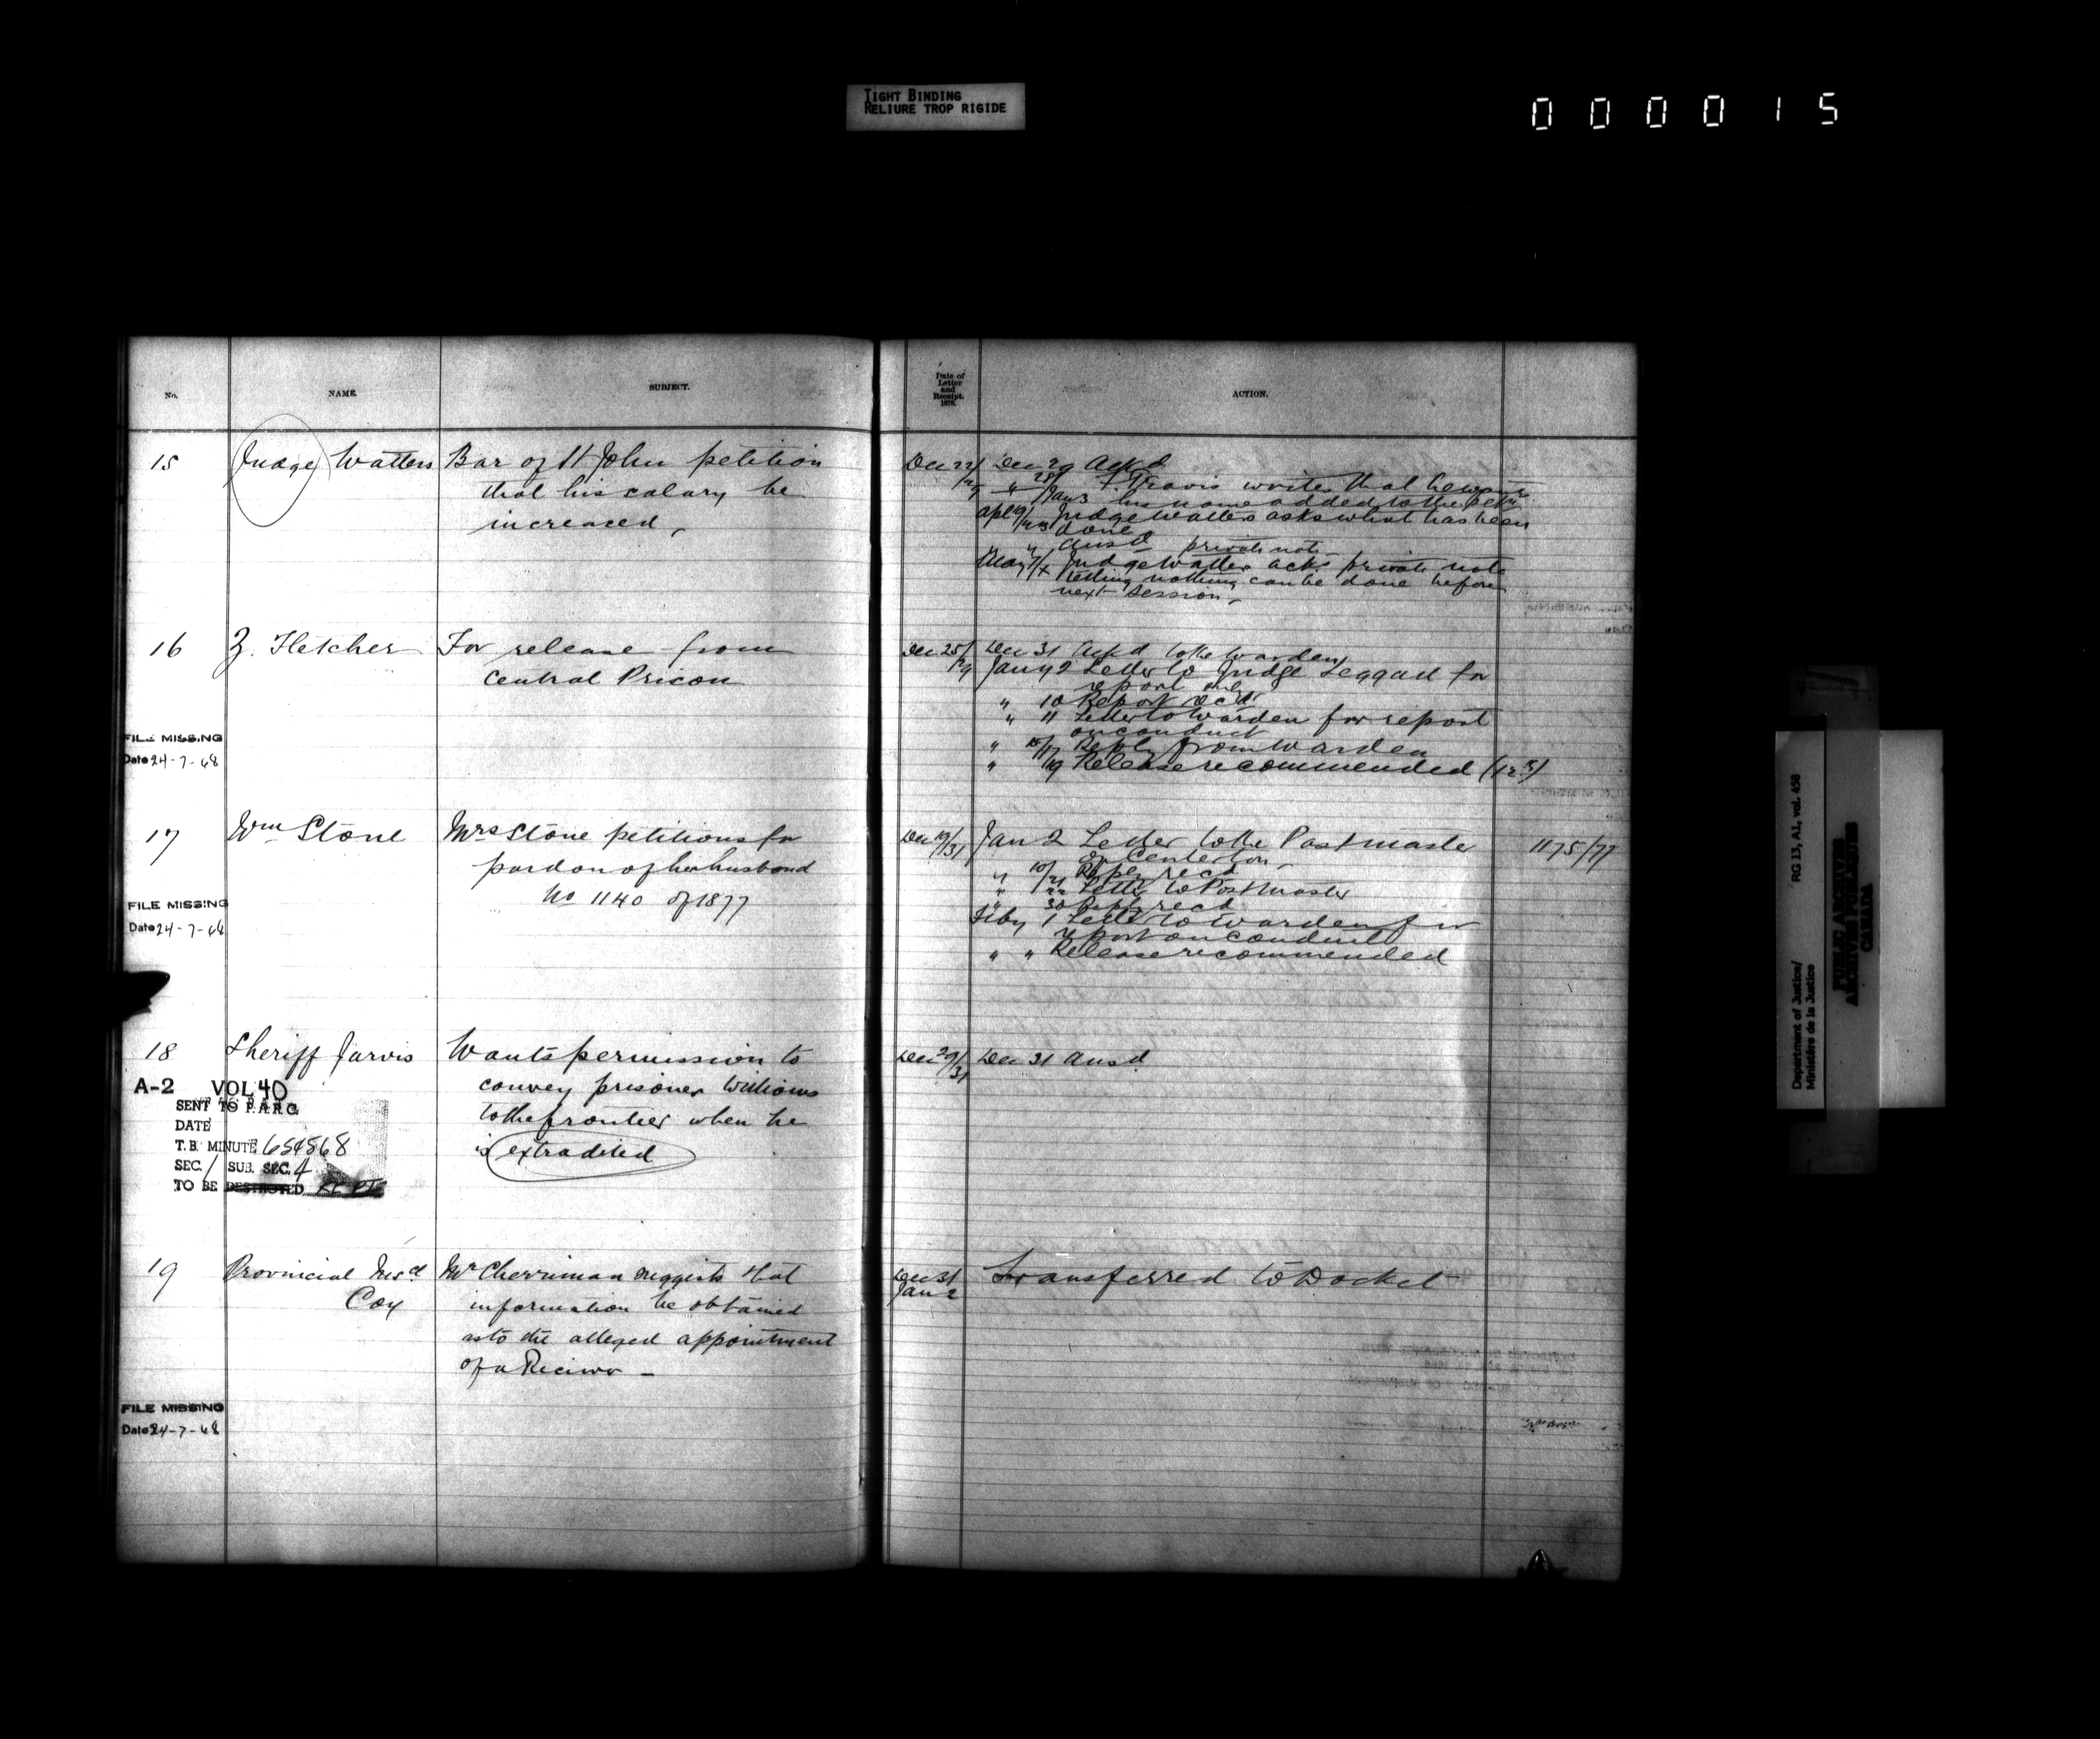 TIGHT BINDING
RELIURE TROP RIGIDE
000015
No.
NAME.
SUBJECT.
Date of
Letter
and
Receipt,
1878.
ACTION.
15
Judge Watters
Bar of St John petition
that his salary be
increased,
Dec 22/
Dec 29 Ackd
" 28/ Travis writes that he wants
Jan 3 his name added to the
Judge Watters asks what has been
done
" " Ansd private note
May Judge Watters acks private note
telling nothing can be done before
next session,
16
Z. Fletcher
For release from
Central Prison
FILE MISSING
Date 24-7-68
Dec 25/
29
Dec 31 Ackd to the Warden
Jany 2 Letter to Judge Leggatt for
report
" 10 Report recd
" 11 Letter to Warden for report
on conduct
" 15/17 Reply from Warden
" 19 Release recommended
17
Wm Stone
Mrs Stone petitions for
pardon of her husband
No 1140 of 1877
FILE MISSING
Date 24-7-68
Dec 19/31
Jan 2 Letter to the Postmaster
1175/77
of Centerton
" 10/21 Reply recd
" 22 Letter to Postmaster
" 30 Reply recd
Feby 1 Letter to Warden for
report on conduct
" " Release recommended
18
Sheriff Jarvis
Wants permission to
convey prisoner Williams
to the frontier when he
is extradited
A-2 VOL 40
SENT TO P.A.R.C.
DATE
T.B. MINUTE 654868
SEC. 1 SUB. SEC. 4
TO BE DESTROYED KEPT
Dec 29/31
Dec 31 Ansd
19
Provincial Insce
Coy
Mr Cherriman suggests that
information be obtained
as to the alleged appointment
of a Receiver —
Dec 31
Jan 2
Transferred to Docket
FILE MISSING
Date 24-7-68
Department of Justice/
Ministère de la Justice
RG 13, A1, vol. 458
PUBLIC ARCHIVES
ARCHIVES PUBLIQUES
CANADA